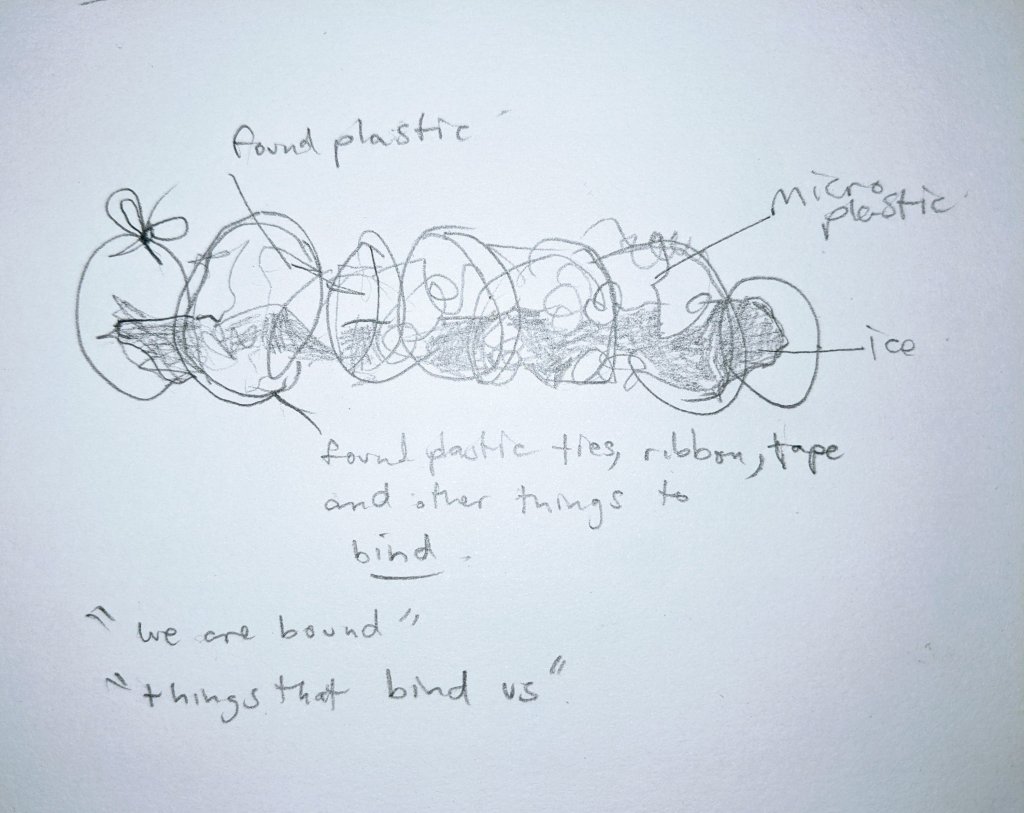 found plastic
micro
plastic
ice
found plastic ties, ribbon, tape
and other things to
bind.
"we are bound"
"things that bind us"